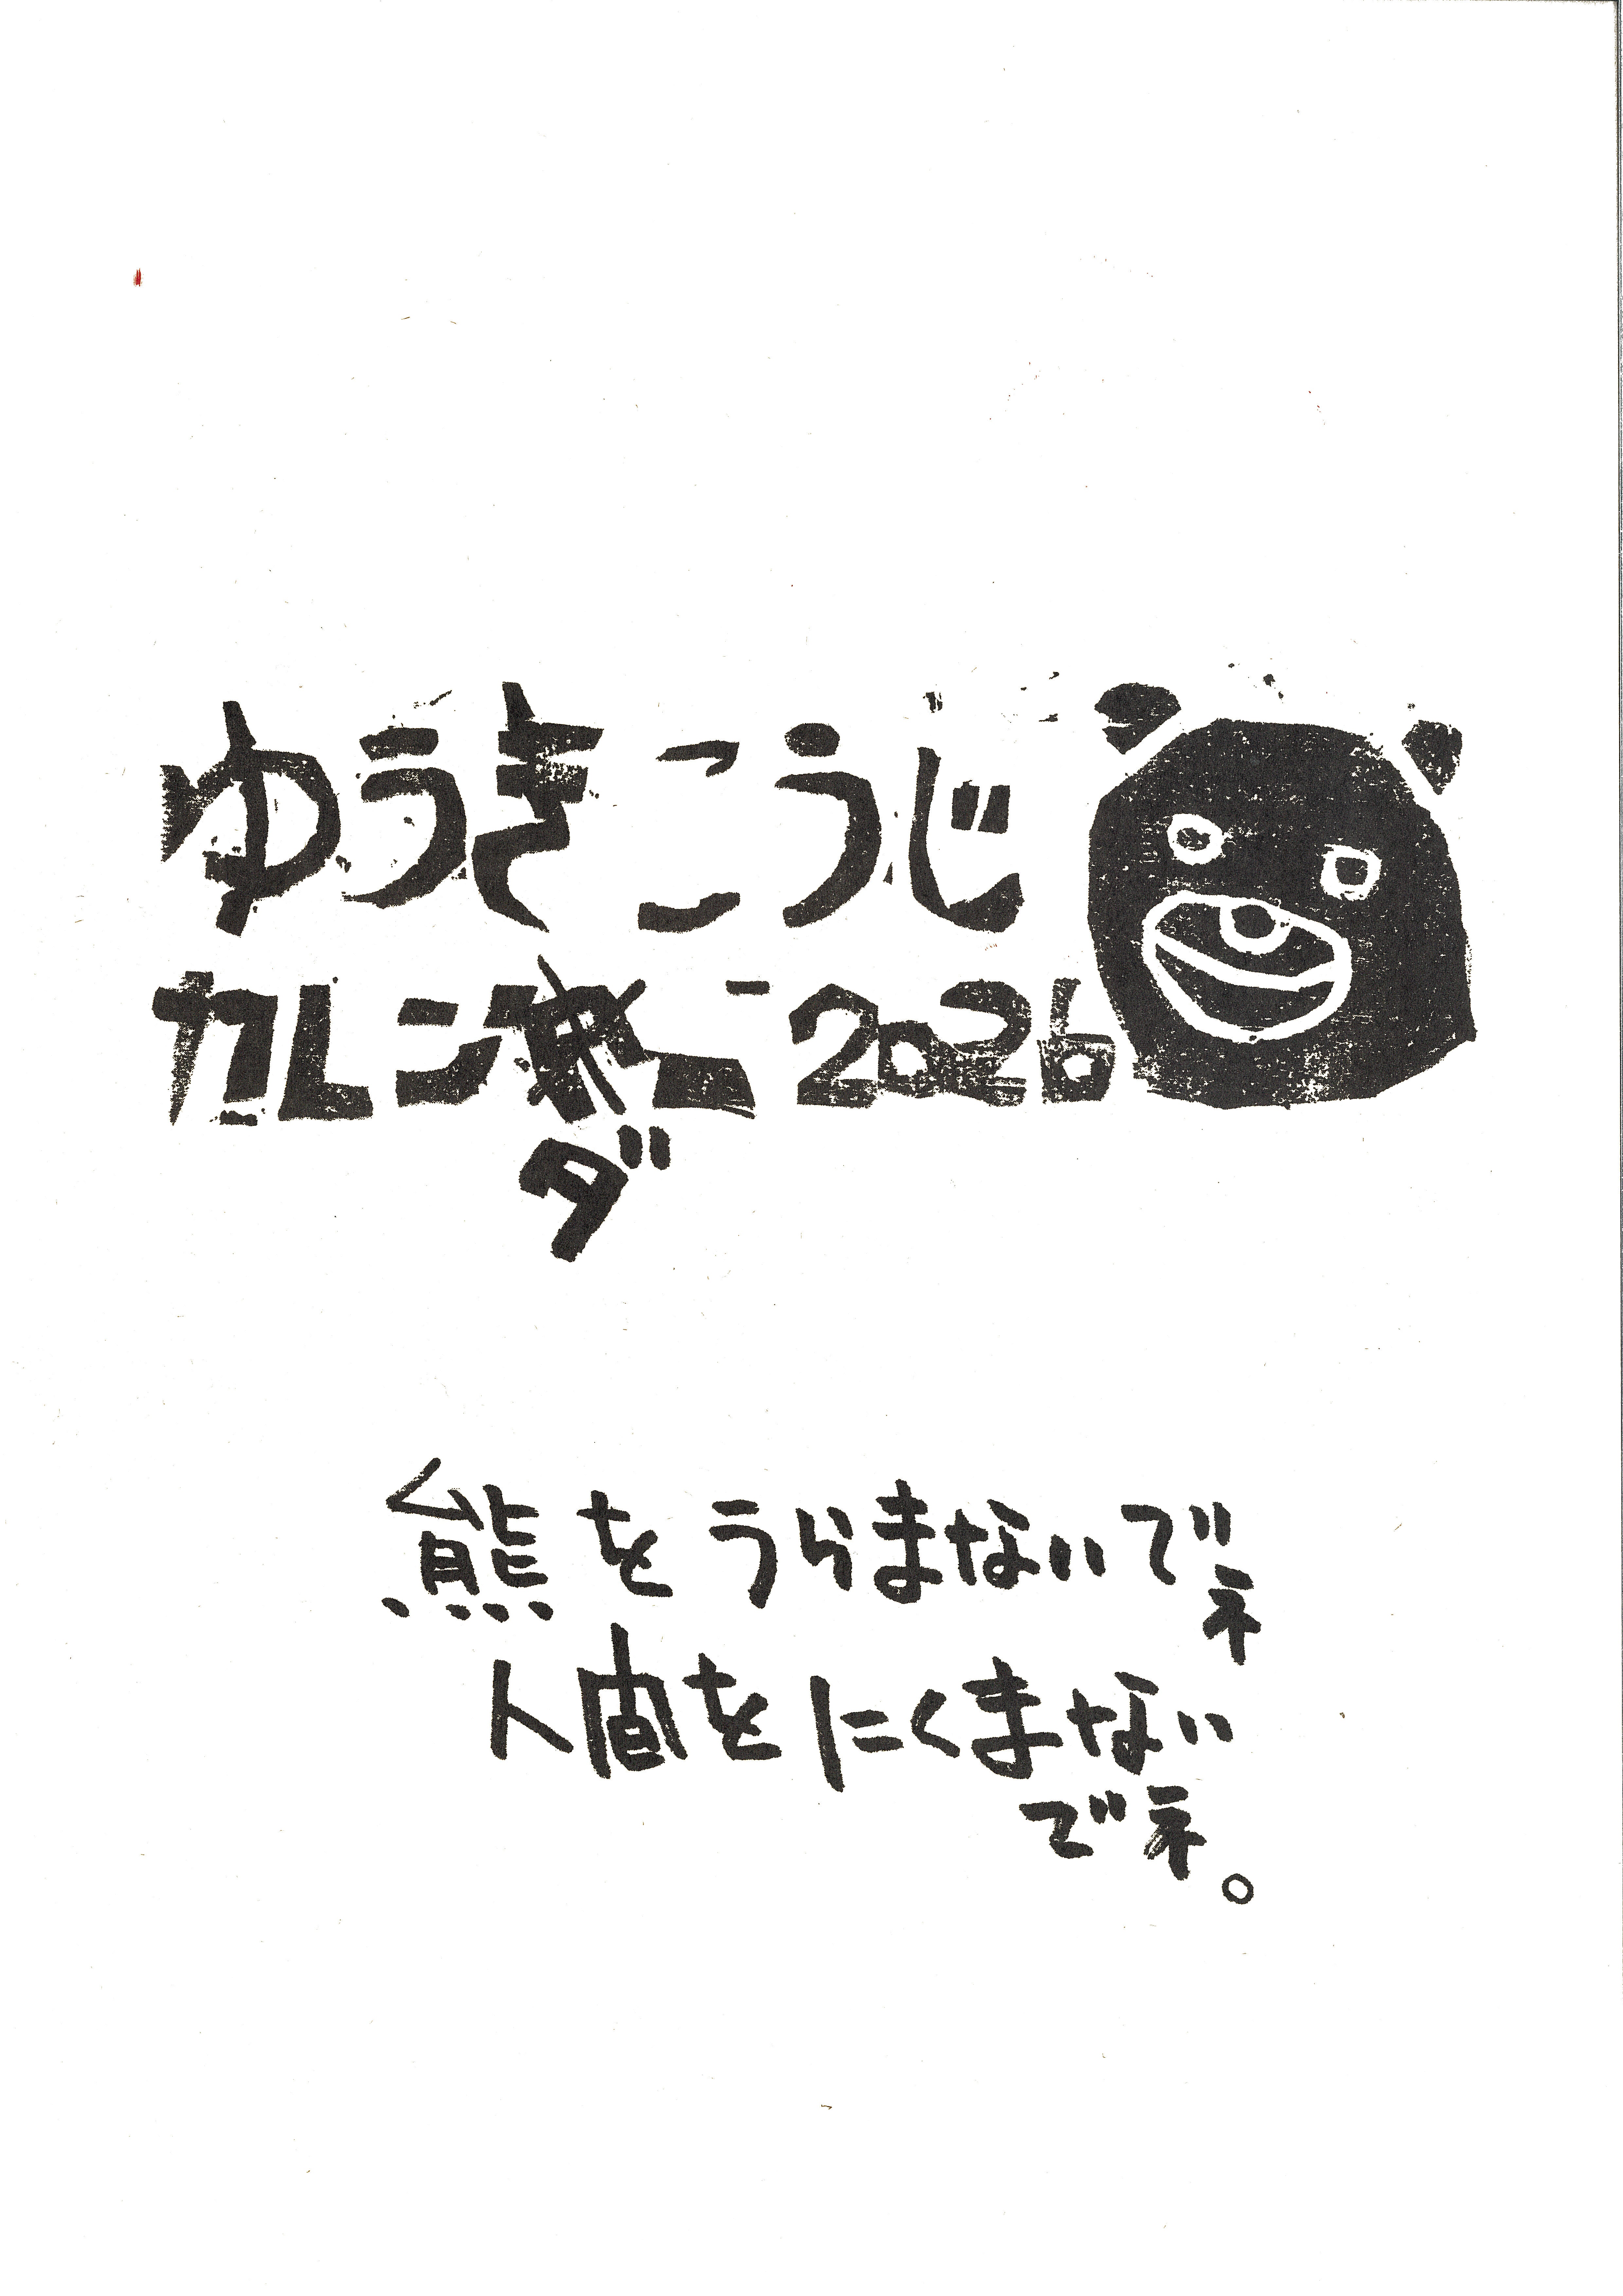 ゆうきこうじ
カレンダー2026
熊をうらまないでネ
人間をにくまない
でネ。